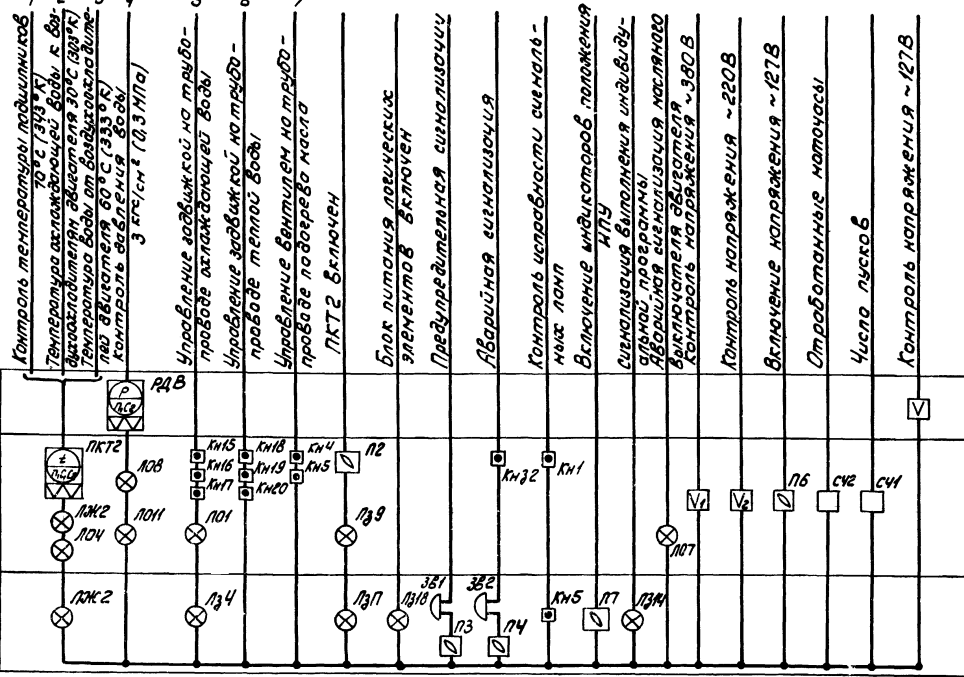 Контроль температуры подшипников
70°С (343°К)
Температура охлаждающей воды к воз-
духоохладителям двигателя 30°С (303°К)
Температура воды от воздухоохладите-
лей двигателя 60°С (333°К)
Контроль давления воды
3 кгс/см² (0,3 МПа)
Управление задвижкой на трубо-
проводе охлаждающей воды
Управление задвижкой на трубо-
проводе теплой воды
Управлен вентилем на трубо-
проводе подогрева масла
ПКТ2 включен
Блок питания логических
элементов включен
Предупредительная сигнализация
Аварийная сигнализация
Контроль исправности сигналь-
ных ламп
Включение индикаторов положения
ИПУ
Сигнализация выполнения индивиду-
альной программы
Аварийная сигнализация масляного
выключателя двигателя
Контроль напряжения ~380В
Контроль напряжения ~220В
Включение напряжения ~127В
Отработанные моточасы
Число пусков
Контроль напряжения ~127В
РДВ
P
V
ПКТ2
t
ЛО8
Кн15
Кн16
Кн17
Кн18
Кн19
Кн20
Кн4
Кн5
П2
Кн32
Кн1
V1
V2
П6
СЧ2
СЧ1
ЛЖ2
ЛО4
ЛО11
ЛО1
ЛЗ9
ЛО7
ЛЖ2
ЛЗ4
ЛЗП
ЛЗ18
ЗВ1
П3
ЗВ2
П4
Кн5
П7
ЛЗ14